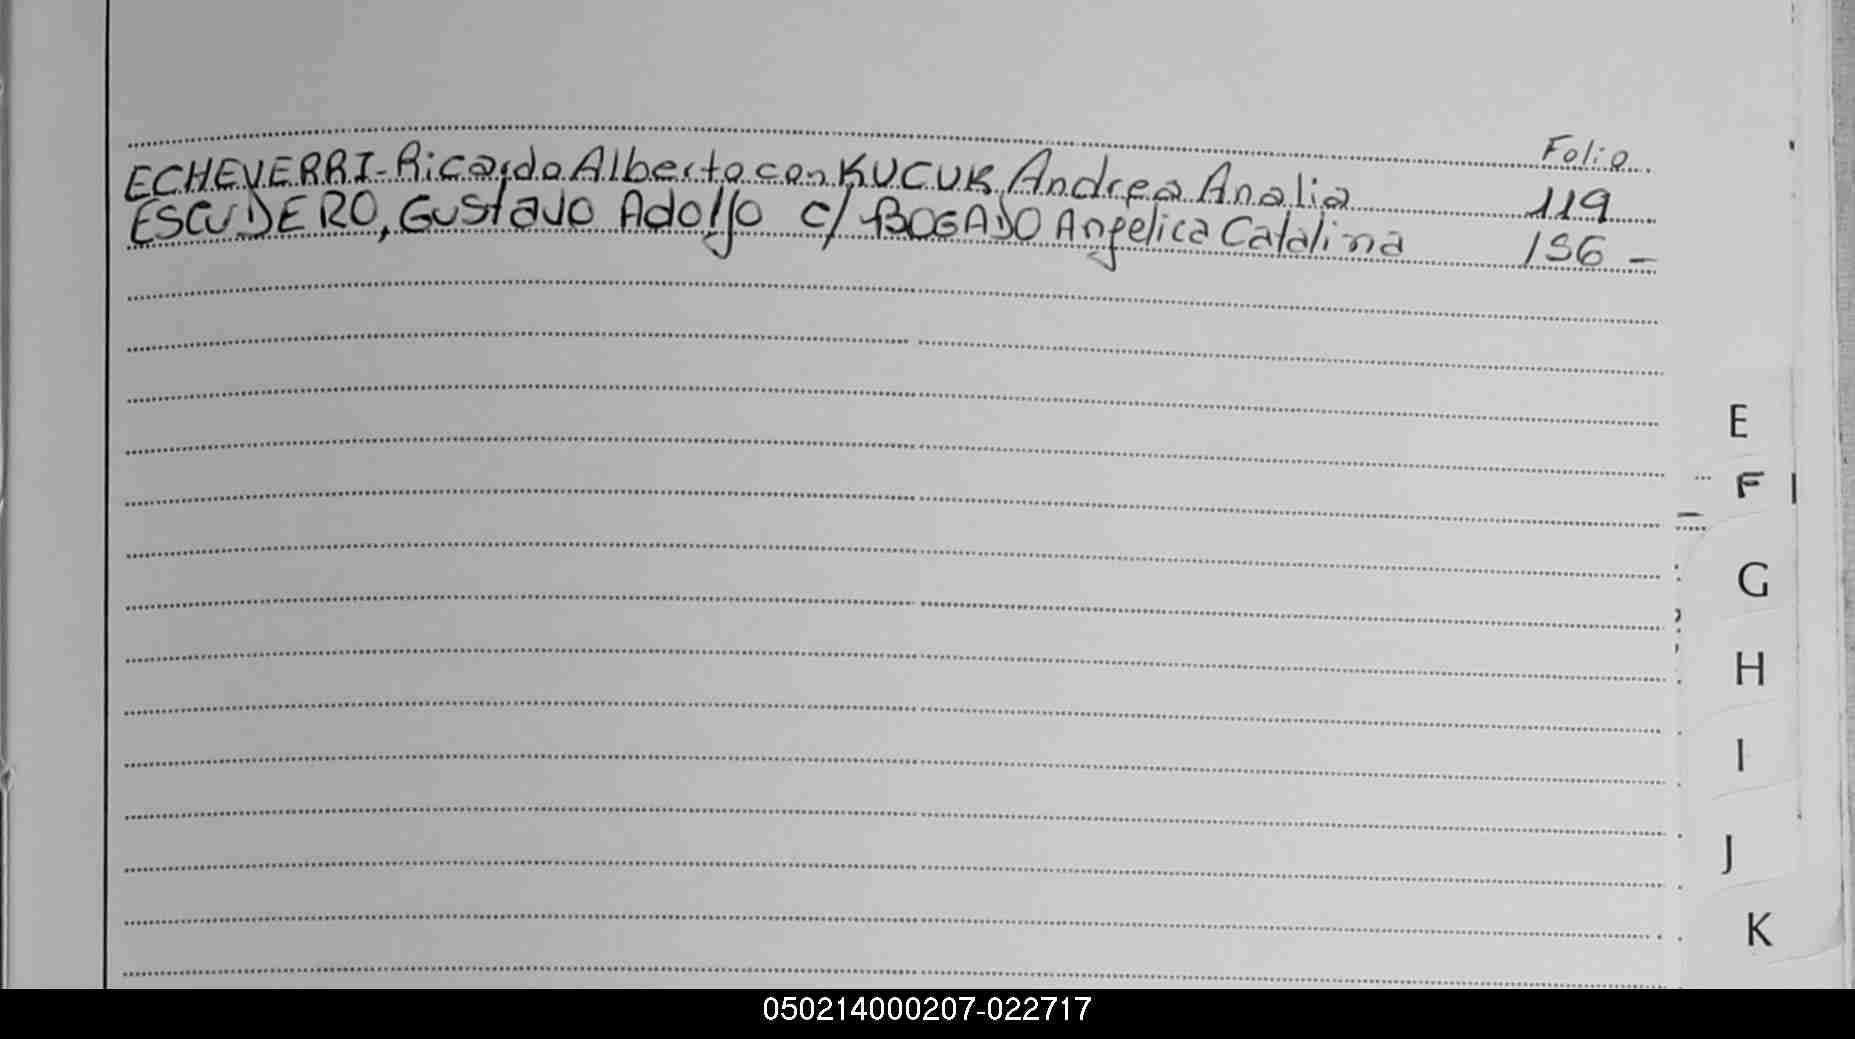 Folio
ECHEVERRI-Ricardo Alberto con KUCUK Andrea Analia 119
ESCUDERO, Gustavo Adolfo c/ BOGADO Angelica Catalina 156 -
E
F
G
H
I
J
K
050214000207-022717